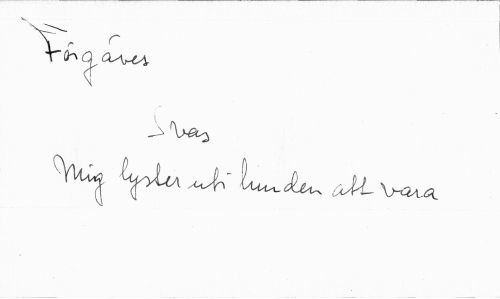 Förgäves
Svas
Mig lyster uti lunden att vara